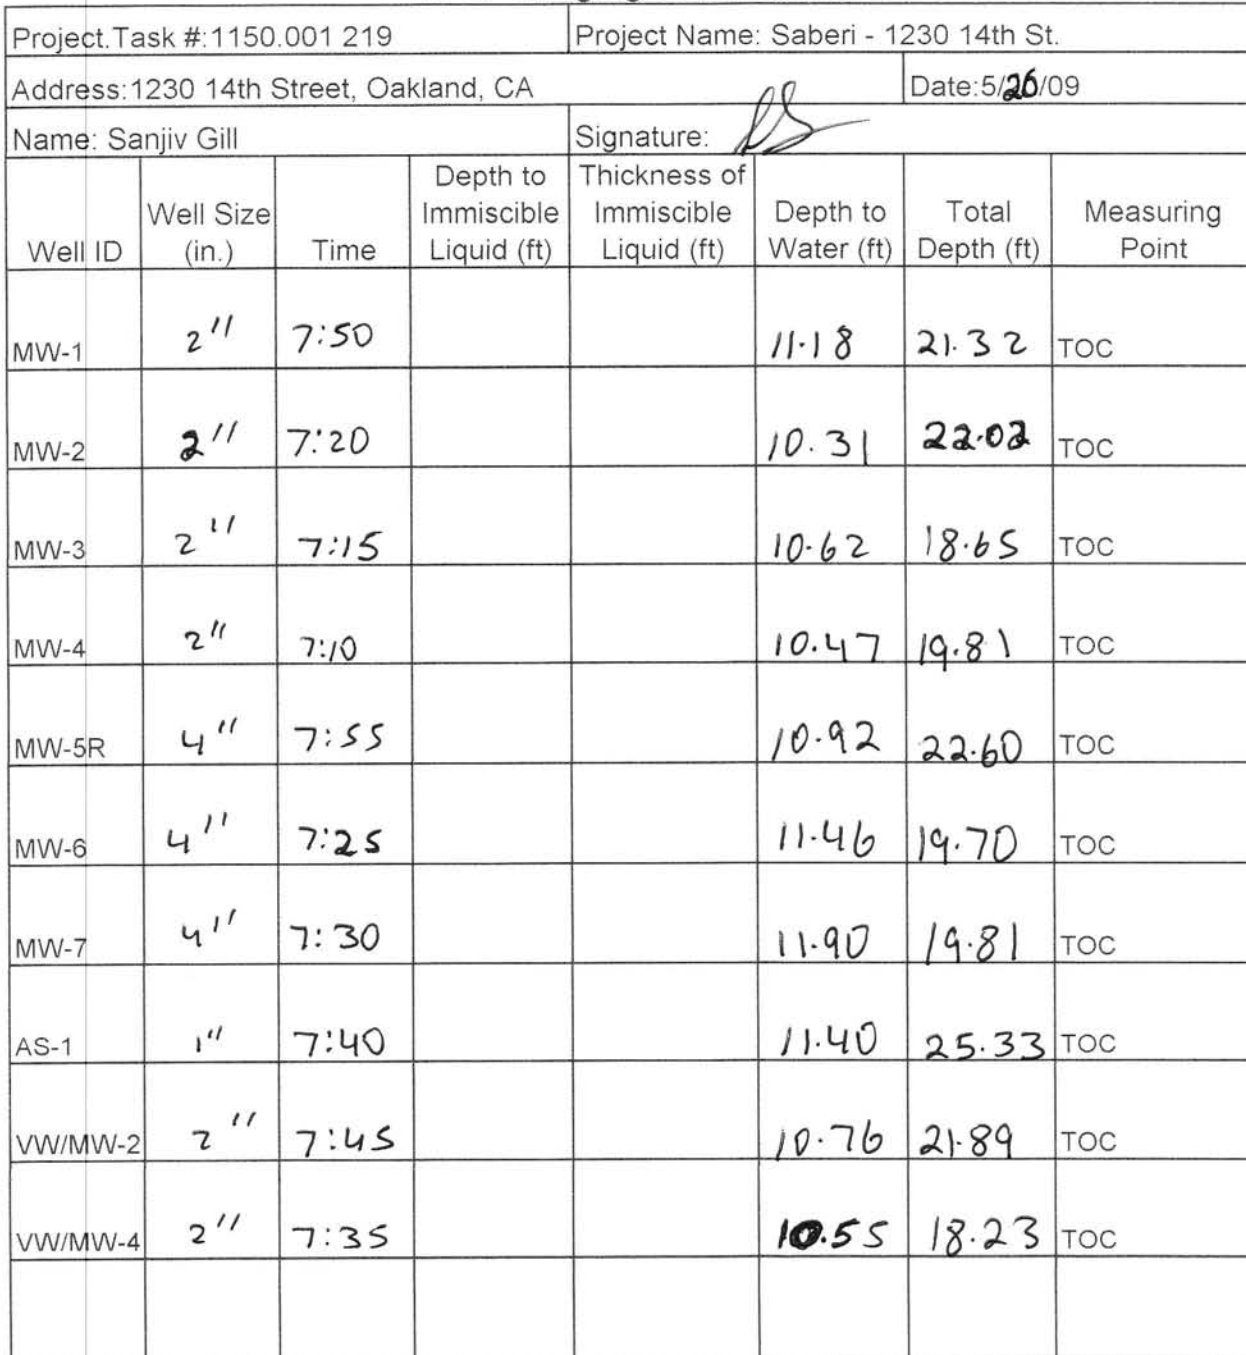 Project.Task #:1150.001 219 Project Name: Saberi - 1230 14th St.
Address:1230 14th Street, Oakland, CA Date:5/26/09
Name: Sanjiv Gill Signature:
Well ID Well Size (in.) Time Depth to Immiscible Liquid (ft) Thickness of Immiscible Liquid (ft) Depth to Water (ft) Total Depth (ft) Measuring Point
MW-1 2" 7:50 11.18 21.32 TOC
MW-2 2" 7:20 10.31 22.02 TOC
MW-3 2" 7:15 10.62 18.65 TOC
MW-4 2" 7:10 10.47 19.81 TOC
MW-5R 4" 7:55 10.92 22.60 TOC
MW-6 4" 7:25 11.46 19.70 TOC
MW-7 4" 7:30 11.90 19.81 TOC
AS-1 1" 7:40 11.40 25.33 TOC
VW/MW-2 2" 7:45 10.76 21.89 TOC
VW/MW-4 2" 7:35 10.55 18.23 TOC